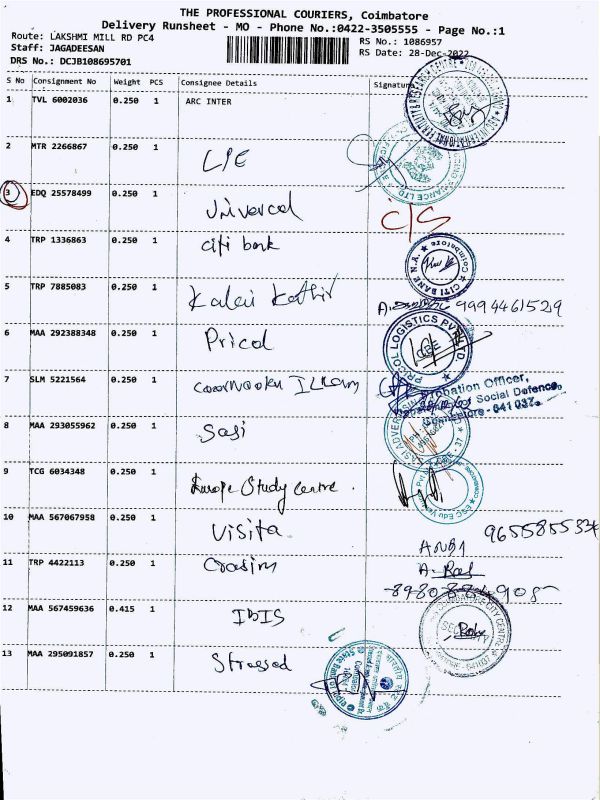 THE PROFESSIONAL COURIERS, Coimbatore
Delivery Runsheet - MO - Phone No.:0422-3505555 - Page No.:1
Route: LAKSHMI MILL RD PC4
RS No.: 1086957
Staff: JAGADEESAN
RS Date: 28-Dec-2022
DRS No.: DCJB108695701
S No Consignment No Weight PCS Consignee Details Signature
1 TVL 6002036 0.250 1 ARC INTER
2 MTR 2266867 0.250 1 LIE
3 EDQ 25578499 0.250 1 Univercal C/S
4 TRP 1336863 0.250 1 Citi bank
CITI BANK N.A. Coimbatore
5 TRP 7885083 0.250 1 Kalai Kathir 9994461529
6 MAA 292388348 0.250 1 Pricol
PRICOL LOGISTICS PVT LTD CBE
7 SLM 5221564 0.250 1
Probation Officer,
Social Defence,
Coimbatore - 641 037.
8 MAA 293055962 0.250 1 Sasi
SASI ADVERTISING
9 TCG 6034348 0.250 1 Europe Study Centre.
10 MAA 567067958 0.250 1 Visita
11 TRP 4422113 0.250 1
12 MAA 567459636 0.415 1 IBIS
CITY CENTRE
SECURITY
13 MAA 295091857 0.250 1 Stressed
State Bank